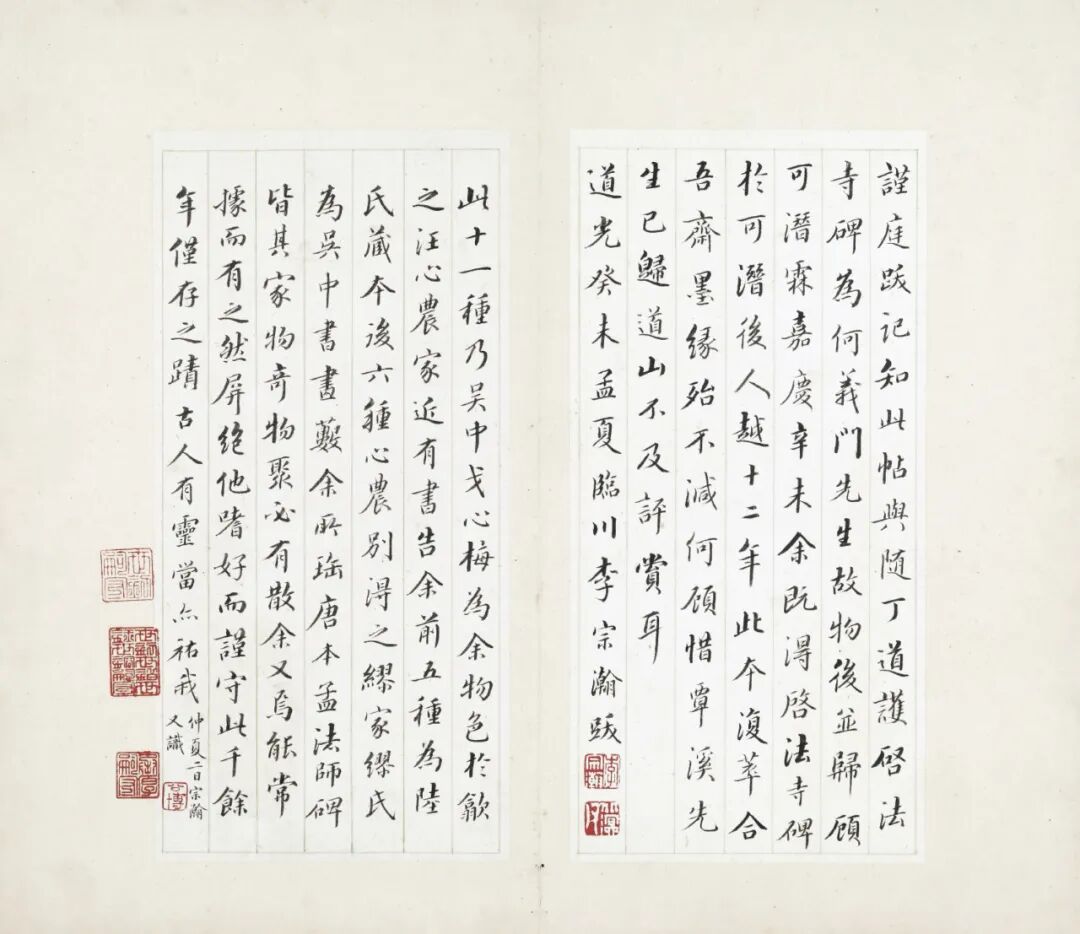 謹庭跋記知此帖與隨丁道護啓法
寺碑為何義門先生故物後並歸顧
可潛霖嘉慶辛未余既淂啓法寺碑
於可潛後人越十二年此本復萃合
吾齋墨緣殆不減何顧惜覃溪先
生已歸道山不及評賞耳
道光癸未孟夏臨川李宗瀚跋
此十一種乃吴中戈心梅為余物色於歙
之汪心農家近有書告余前五種為陸
氏藏本後六種心農別淂之繆家繆氏
為吳中書畫藪余所珤唐本孟法師碑
皆其家物奇物聚必有散余又烏能常
據而有之然屏絶他嗜好而謹守此千餘
年僅存之蹟古人有靈當亦祐我
仲夏二日宗瀚
又識